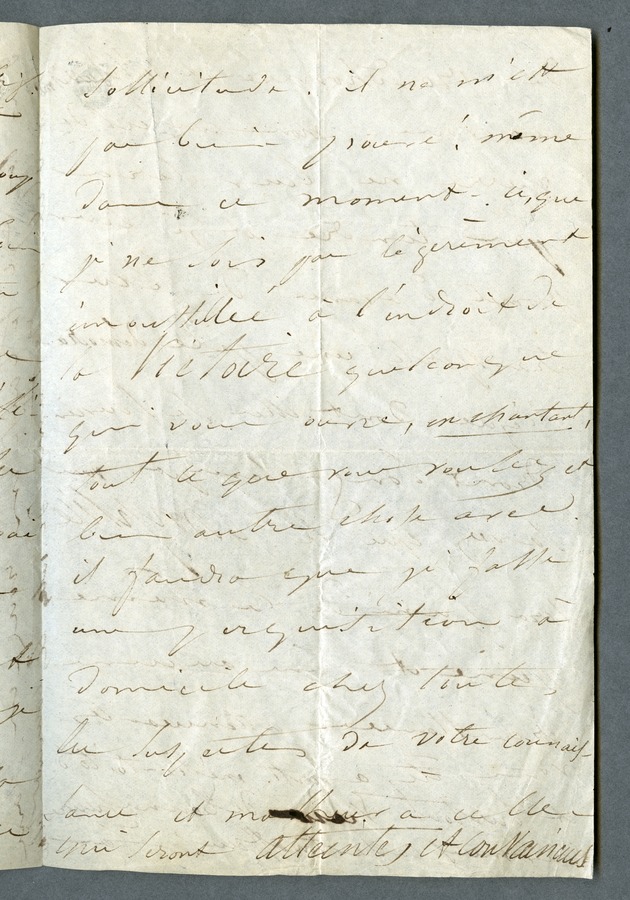 sollicitude. il ne m'est
pas bien prouvé! même
dans ce moment-ci, que
je ne sois pas légèrement
émoustillée à l'endroit de
la Victoire quelconque
qui vous ouvre, en chantant,
tout ce que vous voulez et
bien autre chose avec.
il faudra que je fasse
une perquisition à
domicile chez toutes
les suspectes de votre connais-
sance et malheur à celles
qui seront atteintes et convaincues